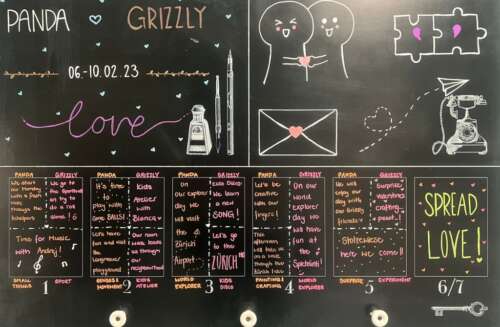 PANDA ♡ GRIZZLY
06.-10.02.23
love
PANDA
GRIZZLY
We start
our Monday
with a fresh
walk
through the
We go to
the
an try to
do a
PANDA
GRIZZLY
It's time
to
play with
some BALLS!
Let's have
fun and visit
the
playground
Kids
Atelier
with
Bianca
Our nomi
walk leads us
through our
neighborhood
PANDA
GRIZZLY
On
our Explorer
day we
will visit
the
Zürich
Airport
Kids Disco:
We learn
a new
SONG!
We go to
the
ZÜRICH
PANDA
GRIZZLY
Let's be
creative
with our
fingers!
This
afternoon
we
a walk
through the
On our
world
explorer
day we
have
fun at
the
Spielhüsli
PANDA
GRIZZLY
We will
enjoy our
day with
our Grizzly
friends
Surprise,
crafting
Stolzewiese
here we come!!
Time for Music
with Andrej!
SPREAD
LOVE!
SMALL
THINGS
1
SPORT
SENSES &
MOVEMENT
2
KIDS
ATELIER
WORLD
EXPLORER
3
KIDS
DISCO
PAINTING &
CRAFTING
4
WORLD
EXPLORER
SURPRISE
5
EXPERIMENT
6/7